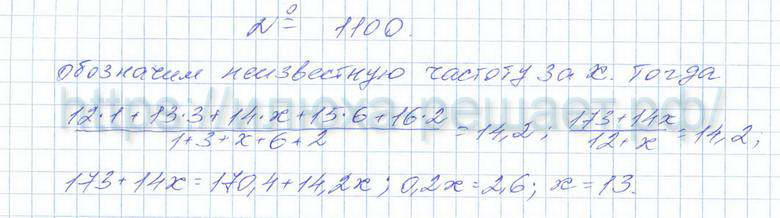 № 1100.
обозначим неизвестную частоту за x. Тогда
(12·1+13·3+14·x+15·6+16·2)/(1+3+x+6+2) = 14,2; (173+14x)/(12+x) = 14,2;
173+14x=170,4+14,2x; 0,2x=2,6; x=13.